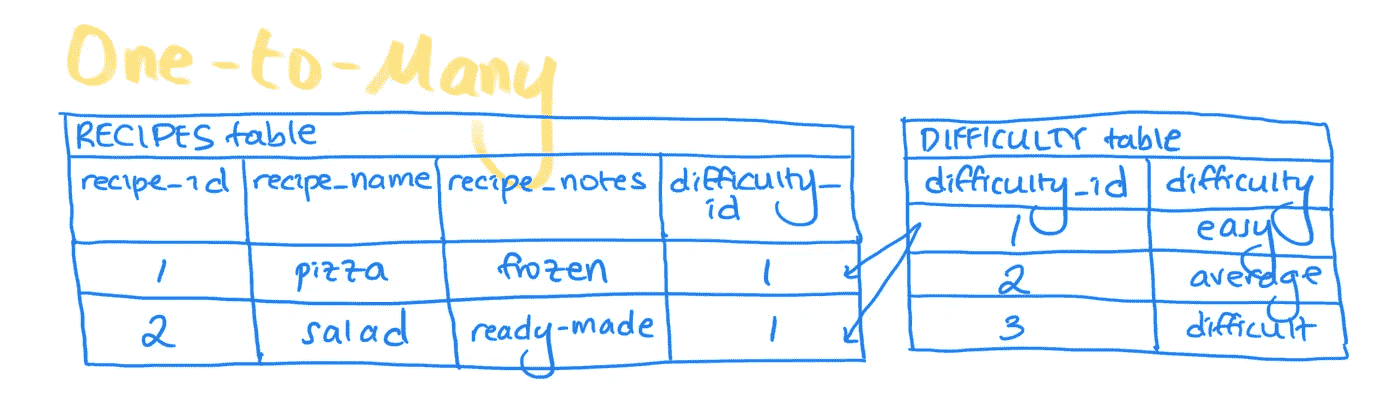 One-to-Many
RECIPES table
recipe_id recipe_name recipe_notes difficulty_
id
1 pizza frozen 1
2 salad ready-made 1
DIFFICULTY table
difficulty_id difficulty
1 easy
2 average
3 difficult